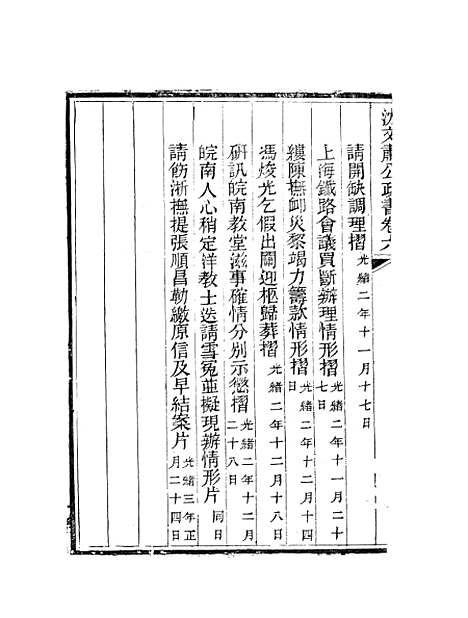 沈文肅公政書卷六
請開缺調理摺光緒二年十一月十七日
上海鐵路會議買斷辦理情形摺光緒二年十一月二十七日
縷陳撫卹災黎竭力籌款情形摺光緒二年十二月十四日
馮焌光乞假出關迎柩歸葬摺光緒二年十二月十八日
研訊皖南教堂滋事確情分別示懲摺光緒二年十二月二十八日
皖南人心稍定洋教士迭請雪冤並擬現辦情形片同日
請飭浙撫提張順昌勒繳原信及早結案片光緒三年正月二十四日